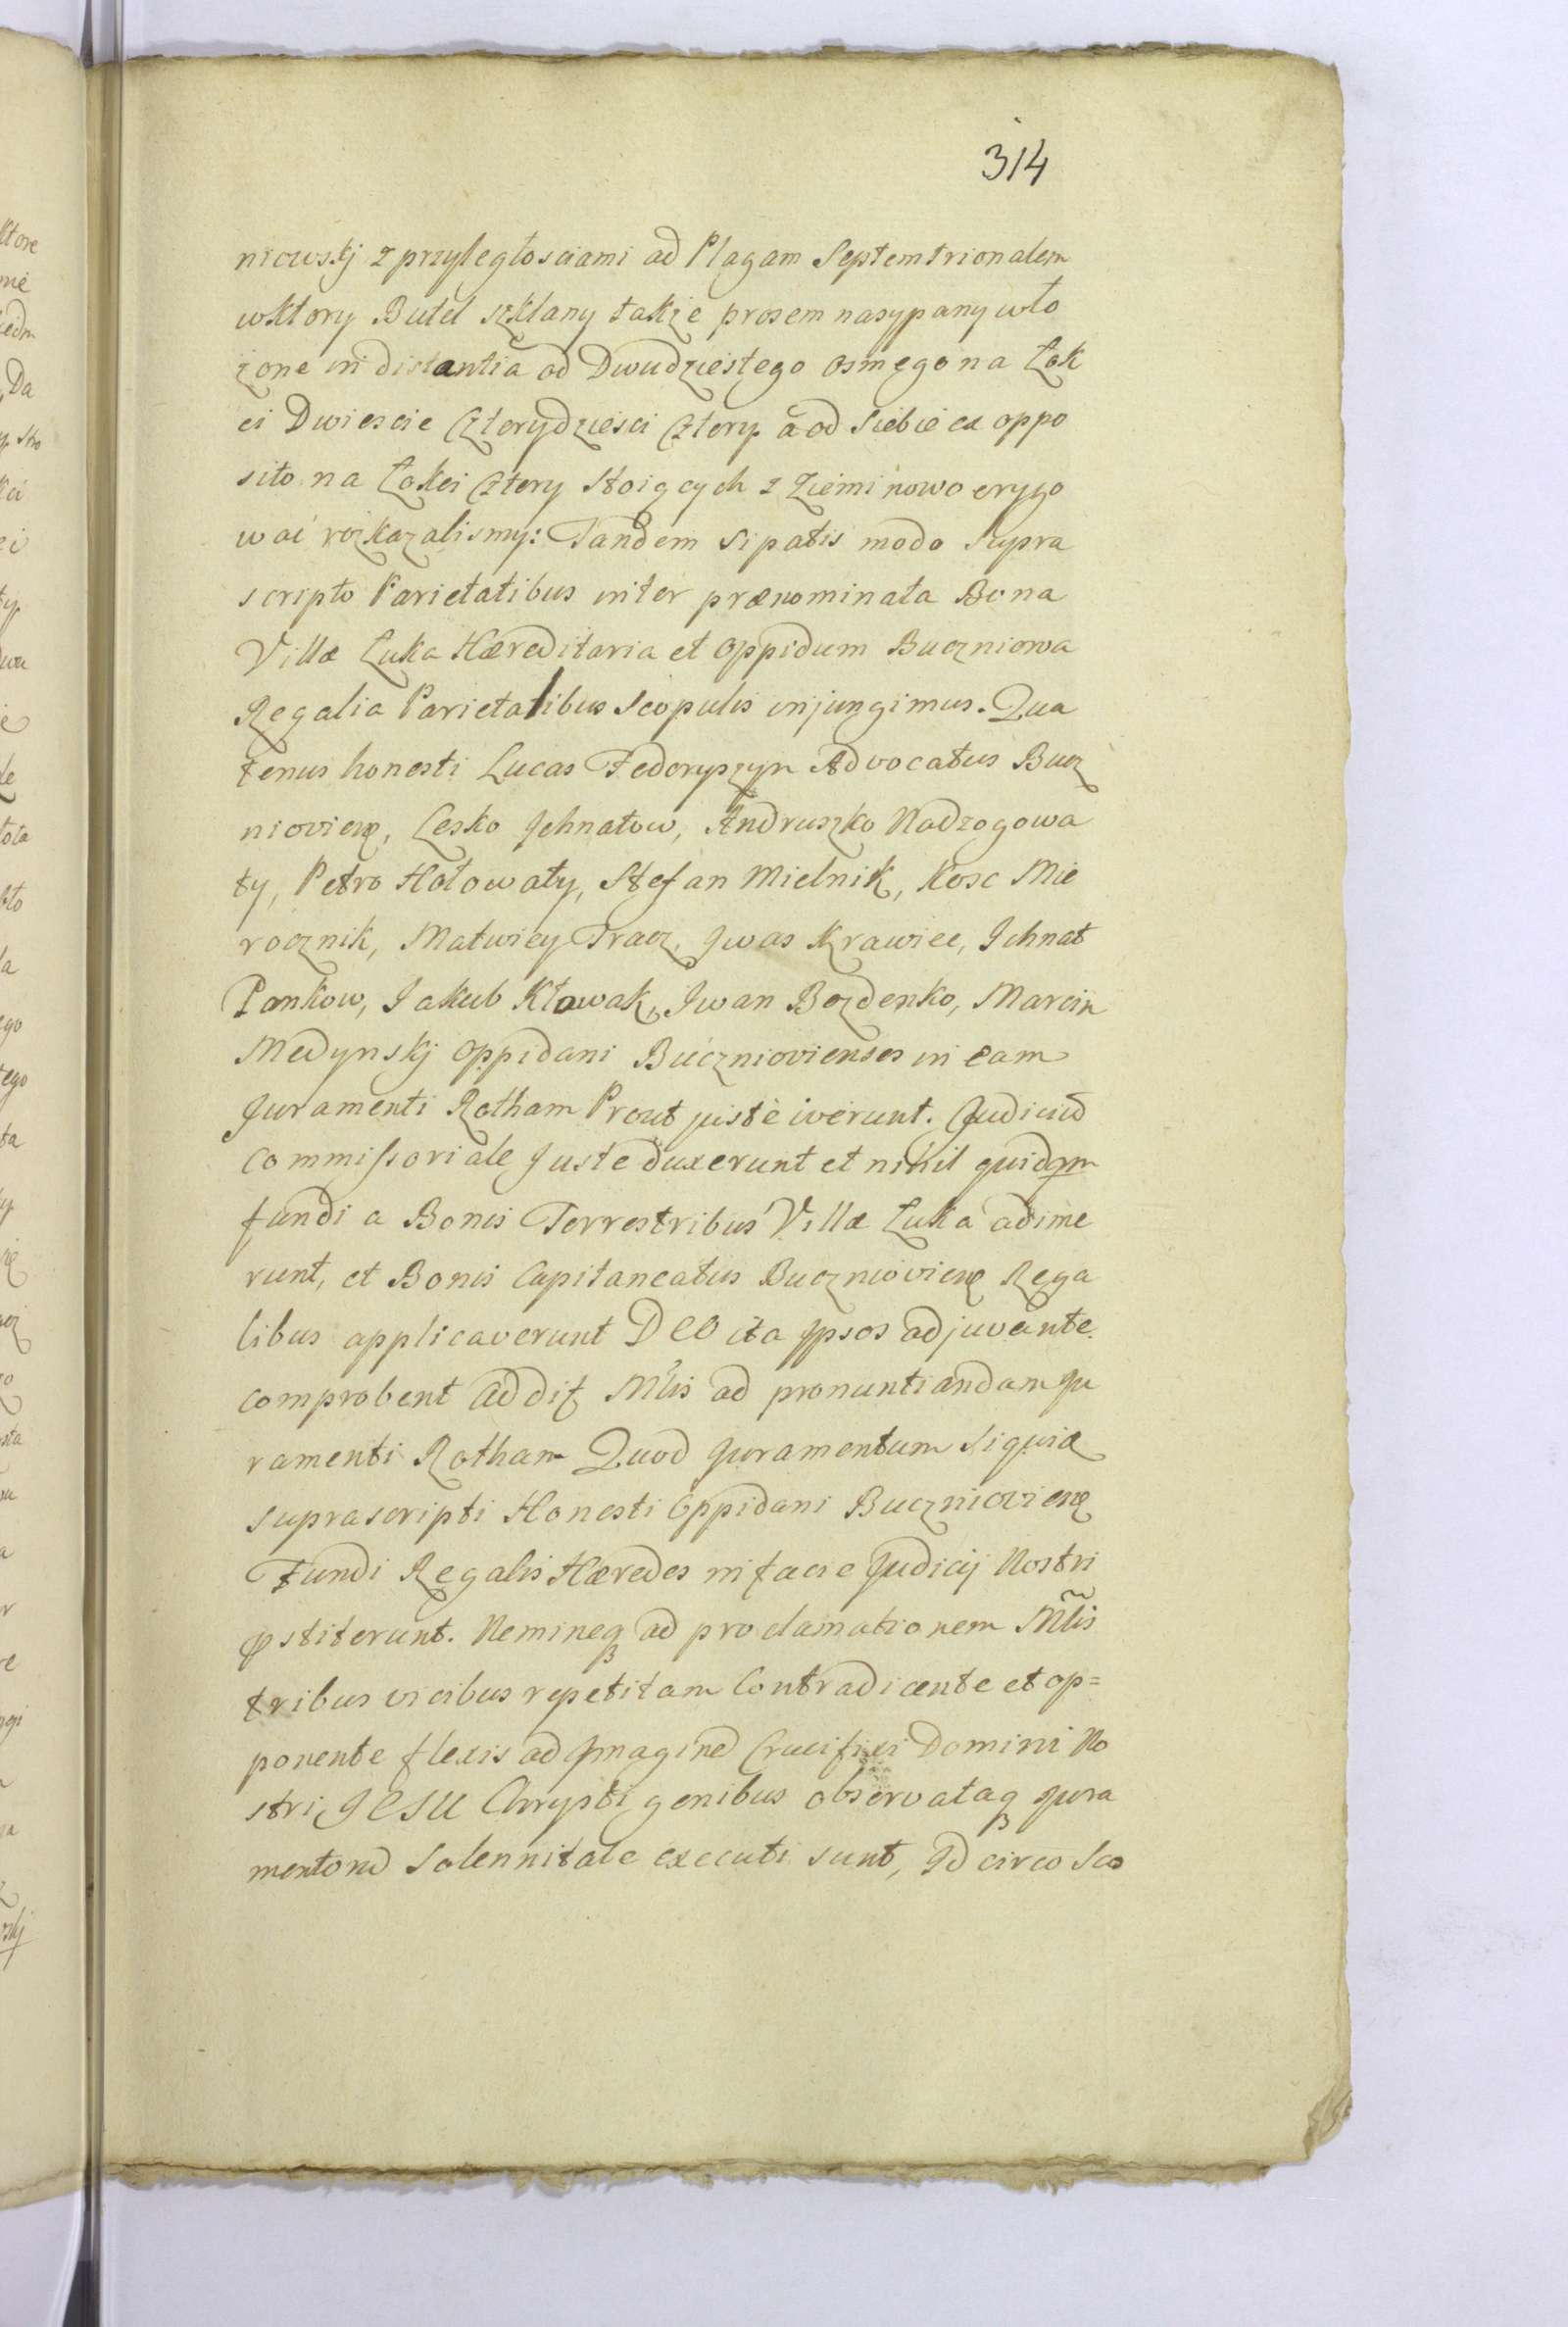 314
niowskj z przyległosciami ad Plagam Septemtrionalem
wktory Butel szklany także prosem nasypany wło
żone in distantia od Dwudziestego osmego na Łok
ci Dwiescie Czterydziesci Cztery a od Siebie ex oppo
sito na Łokci Cztery stoiących z Ziemi nowo erygo
wać rozkazalismy: Tandem sipatis modo supra
scripto Parietatibus inter prænominata Bona
Villæ Łuka Hæreditaria et Oppidum Buczniowa
Regalia Parietalibus Scopulis injungimus. Qua
tenus honesti Lucas Fedoryszyn Advocatus Bucz
niovien, Lesko Jehnatow, Andruszko Nadzogowa
ty, Petro Hołowaty, Stefan Mielnik, Kosc Mie
rocznik, Matwiey Tracz, Jwas Krawiec, Jchnat
Pankow, Jakub Kławak, Jwan Bozdenko, Marcin
Medynskj Oppidani Buczniovienses in eam
Juramenti Rotham Prout juste iverunt. Judiciu
Commissoriale Juste duxerunt et nihil quidqm
fundi a Bonis Terrestribus Villæ Łuka adime
runt, et Bonis Capitaneatus Buczniovien Rega
libus applicaverunt DEO ita Jpsos adjuvante
comprobent addit Mlis ad pronuntiandam Ju
ramenti Rotham Quod Juramentum Siquidē
suprascripti Honesti Oppidani Buczniovien
Fundi Regalis Hæredes in facie Judicij Nostri
pstiterunt. Nemineq ad proclamationem Mlis
tribus vicibus repetitam Contradicente et op=
ponente flexis ad Jmagine Crucifixi Domini No
stri JESU Chrysti genibus observataq Jura
mentoru Solennitate executi sunt, Jd circo Sco